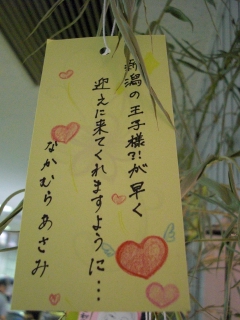 新潟の王子様?!が早く
迎えに来てくれますように…
なかむら あさみ